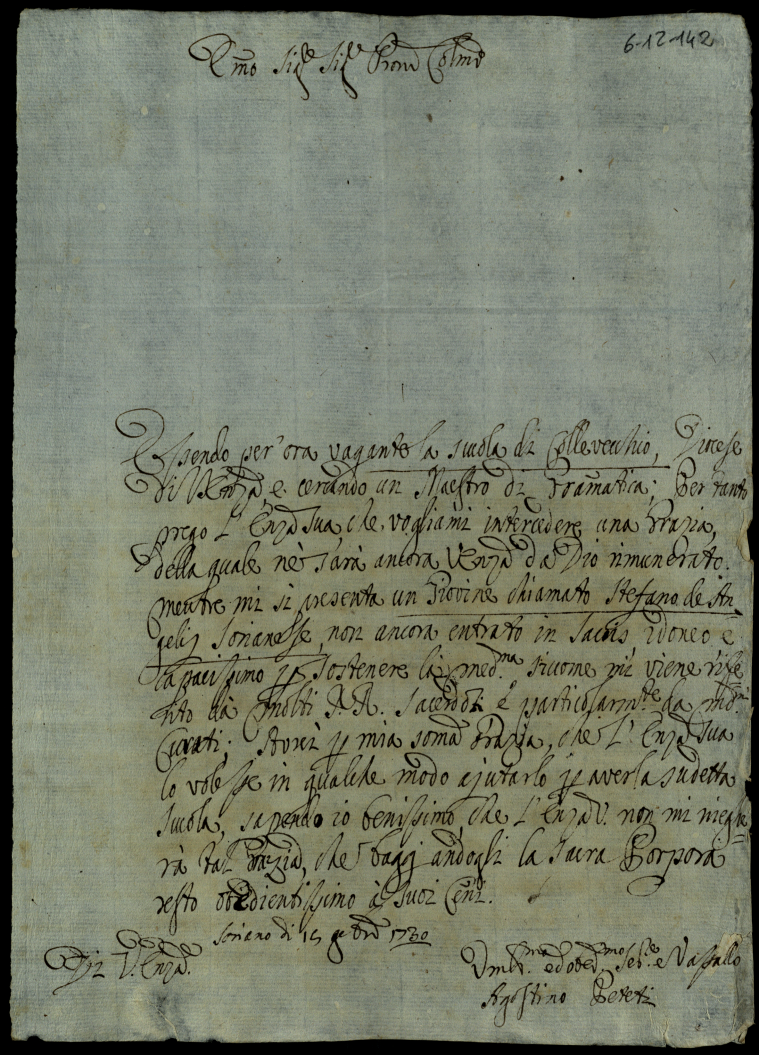 6-12-142
Emo Sigre Sigre Prone Colmo
Essendo per ora vagante la scuola di Collevecchio, Diocese
di V. Enza, e cercando un Maestro di Gramatica; Per tanto
prego l'Enza sua che vogliami intercedere una Grazia,
della quale nè sarà ancora V. Enza da Dio rimunerato.
mentre mi si presenta un Giovine chiamato Stefano de An-
gelis Sorianesse, non ancora entrato in Sacris idoneo e
capacissimo p sostenere la medma siccome mi viene rife
rito da molti R.R. Sacerdoti e particolarmte da
Curati; Averei p mia soma Grazia, che l'Enza sua
lo volesse in qualche modo ajutarlo p aver la sudetta
scuola, sapendo io benissimo, che l'Enza V. non mi nieghe
rà tal Grazia, che bagiandogli la Sacra Porpora
resto obedientissimo à suoi Cenni.
Soriano di 15 9bre 1730
Di V. Enza.
Umilma ed obedmo Sere e Vassallo
Agostino Peteti